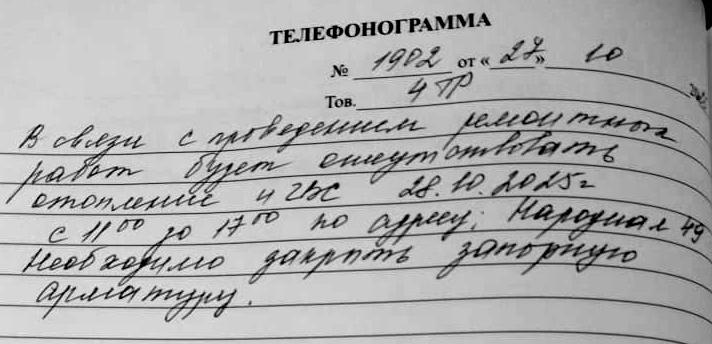 ТЕЛЕФОНОГРАММА
№ 1902 от «27» 10
Тов. 4 ТР
В связи с проведением ремонтных
работ будет отсутствовать
отопление и ГВС 28.10.2025г
с 11⁰⁰ до 17⁰⁰ по адресу: Народная 49
Необходимо закрыть запорную
арматуру.